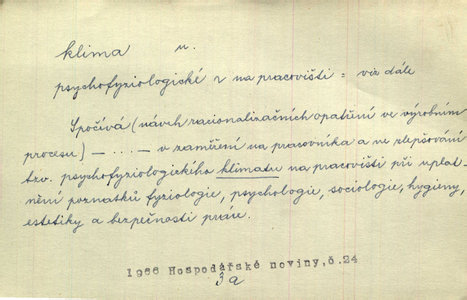 klima n.
psychofyziologické ~ na pracovišti = viz dále
Spočívá (návrh racionalizačních opatření ve výrobním
procesu) — . — . — v zaměření na pracovníka a ve zlepšování
tzv. psychofyziologického klimatu na pracovišti při uplat-
nění poznatků fyziologie, psychologie, sociologie, hygieny,
estetiky a bezpečnosti práce.
1966 Hospodářské noviny,č.24
3a